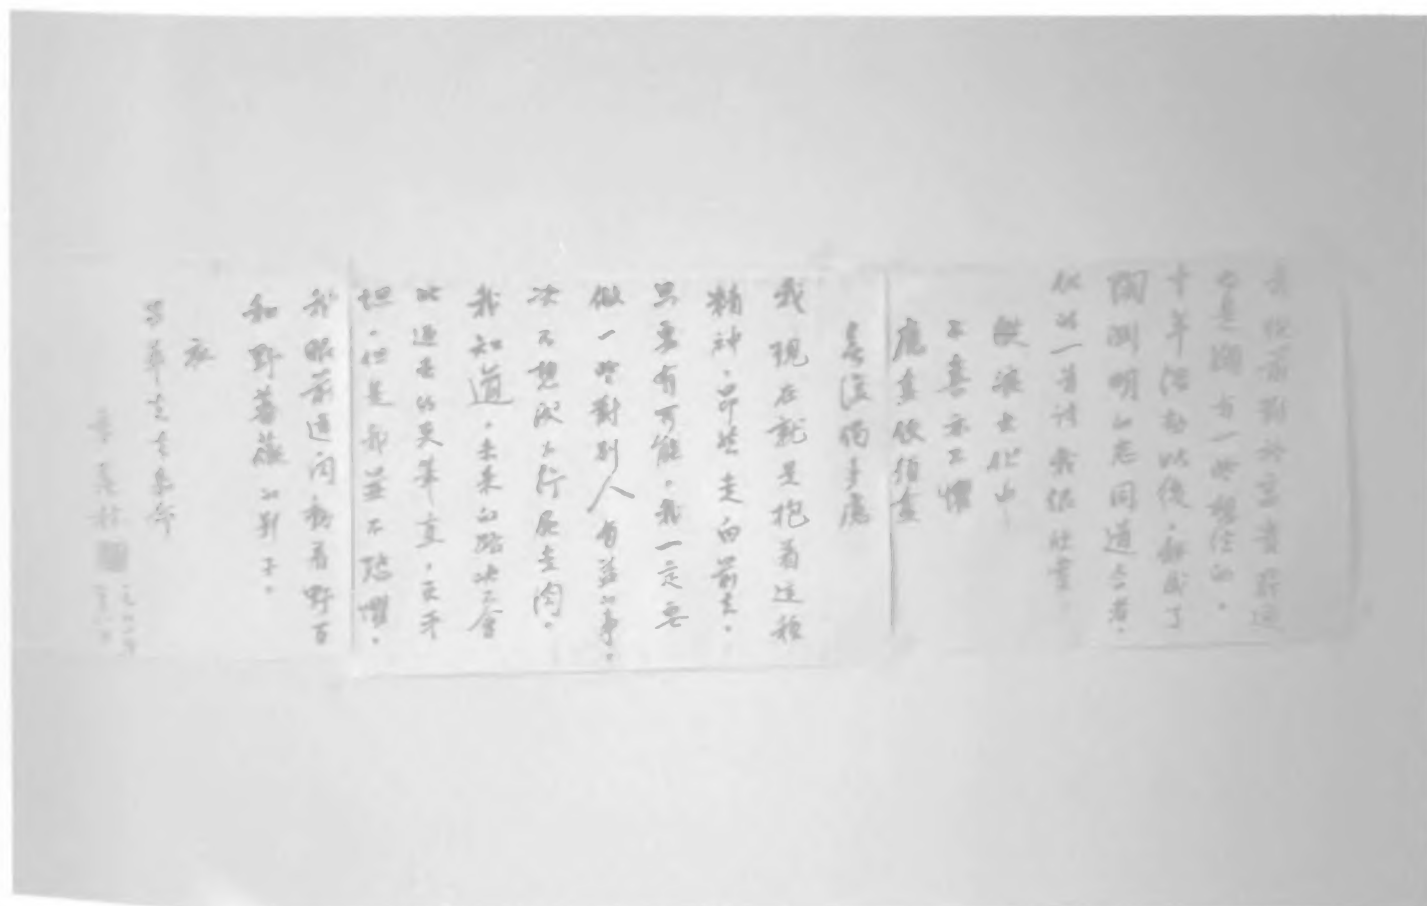 從前對於
也是頗有一些想法的。
十年浩劫以後,却成了
陶淵明的志同道合者。
他的一首詩我很欣賞:
縱浪大化中
不喜亦不懼
應盡便須盡
無復獨多慮
我現在就是抱着這種
精神,昂然走向前去。
只要有可能,我一定要
做一些對別人有益的事,
决不想成为行尸走肉。
我知道,未來的路决不會
比過去的更筆直,更平
坦,但是我並不恐懼。
我眼前還閃動着野百
和野薔薇的影子。
季羡林